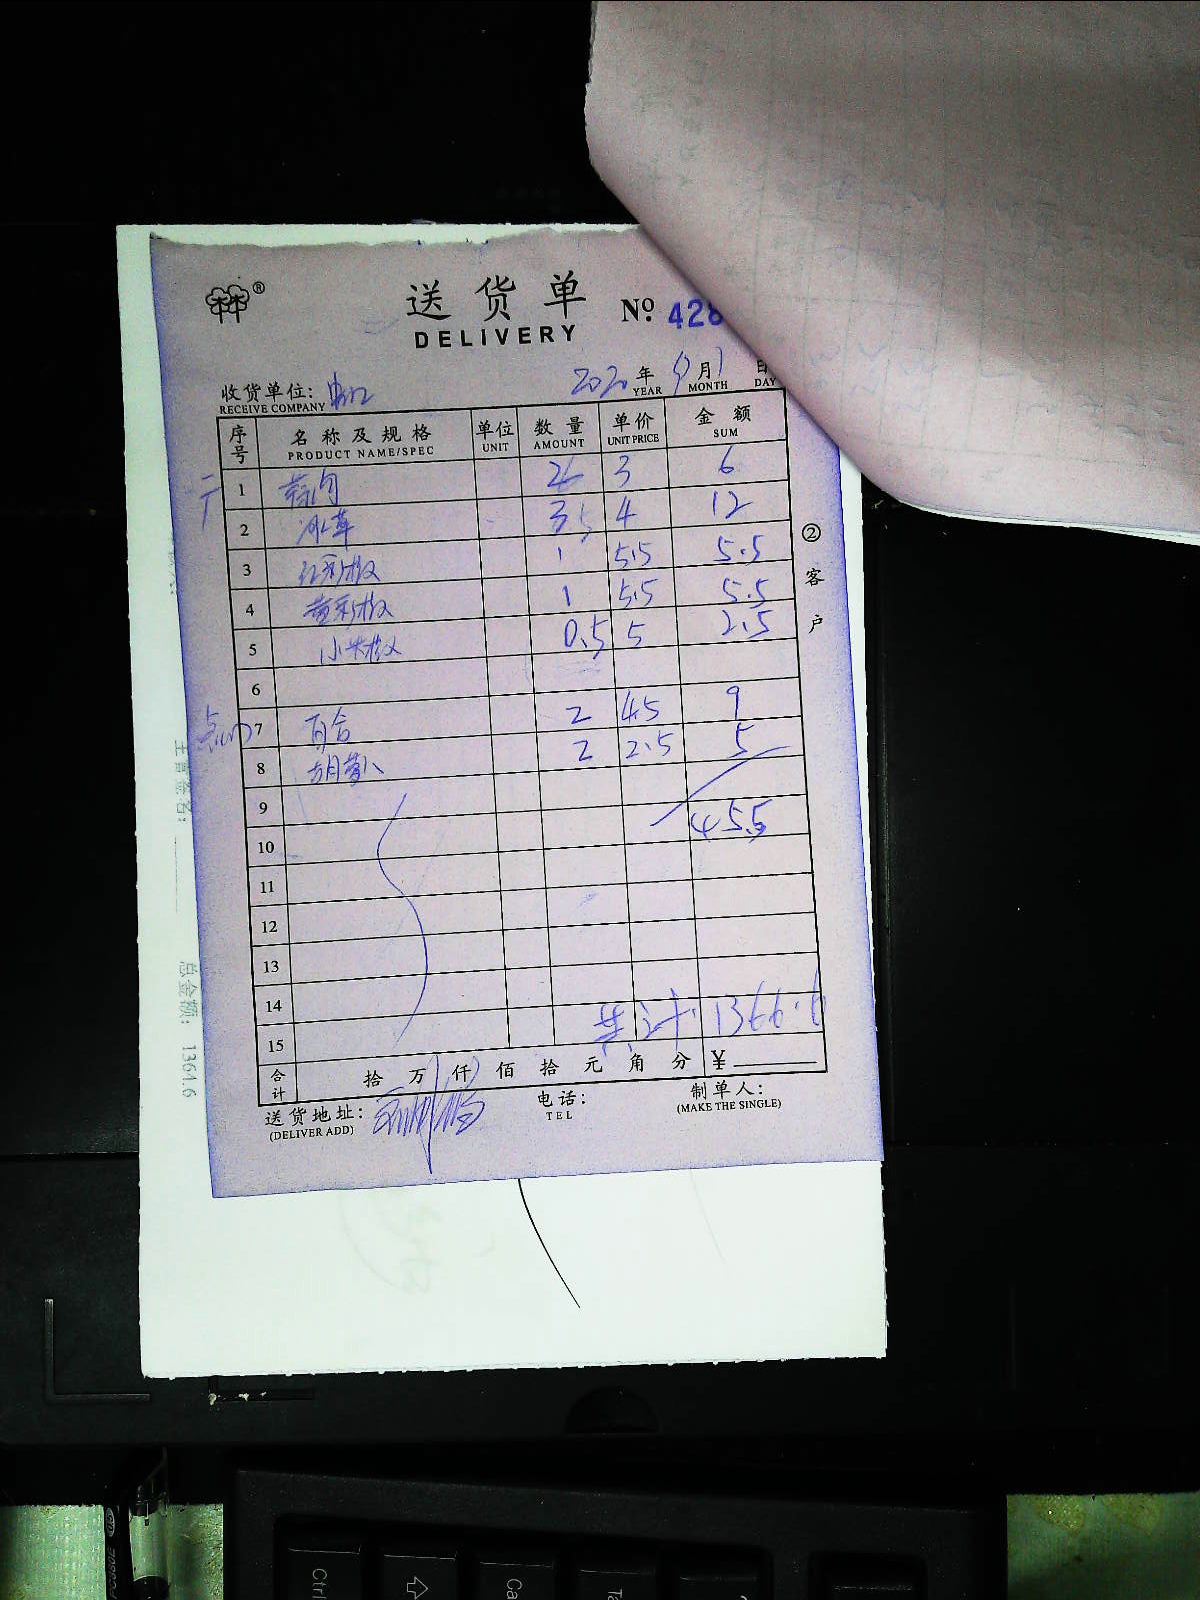 ®
送货单
DELIVERY
№ 428
收货单位:
RECEIVE COMPANY
2020 年 9 月 1 日
YEAR MONTH DAY
序号 名称及规格 单位 数量 单价 金额
PRODUCT NAME/SPEC UNIT AMOUNT UNIT PRICE SUM
1 蒜肉 2 3 6
2 冰草 3 4 12
3 红彩椒 1 5.5 5.5
4 黄彩椒 1 5.5 5.5
5 小米椒 0.5 5 2.5
6
点心 7 百合 2 4.5 9
8 胡萝卜 2 2.5 5
9
10 45.5
11
12
13
14
15 共计 1366.6
合计 拾 万 仟 佰 拾 元 角 分 ¥
送货地址: 电话: 制单人:
(DELIVER ADD) TEL (MAKE THE SINGLE)
②客户
主管签名:
总金额: 1364.6
Ctrl